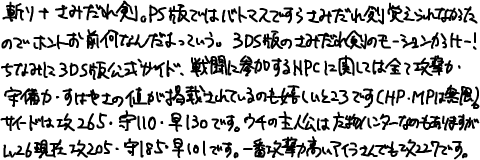 斬り+さみだれ剣。PS版ではバトマスですらさみだれ剣覚えられなかった
のでホントお前何なんだよっていう。3DS版のさみだれ剣のモーションかっけー!
ちなみに3DS版公式ガイド、戦闘に参加するNPCに関しては全て攻撃力・
守備力・すばやさの値が掲載されているのも嬉しいところです(HP・MPは無限)。
サイードは攻265・守110・早130です。ウチの主人公は魔物ハンターなのもありますが
Lv26現在攻205・守185・早101です。一番攻撃力高いアイラさんでも攻227です。